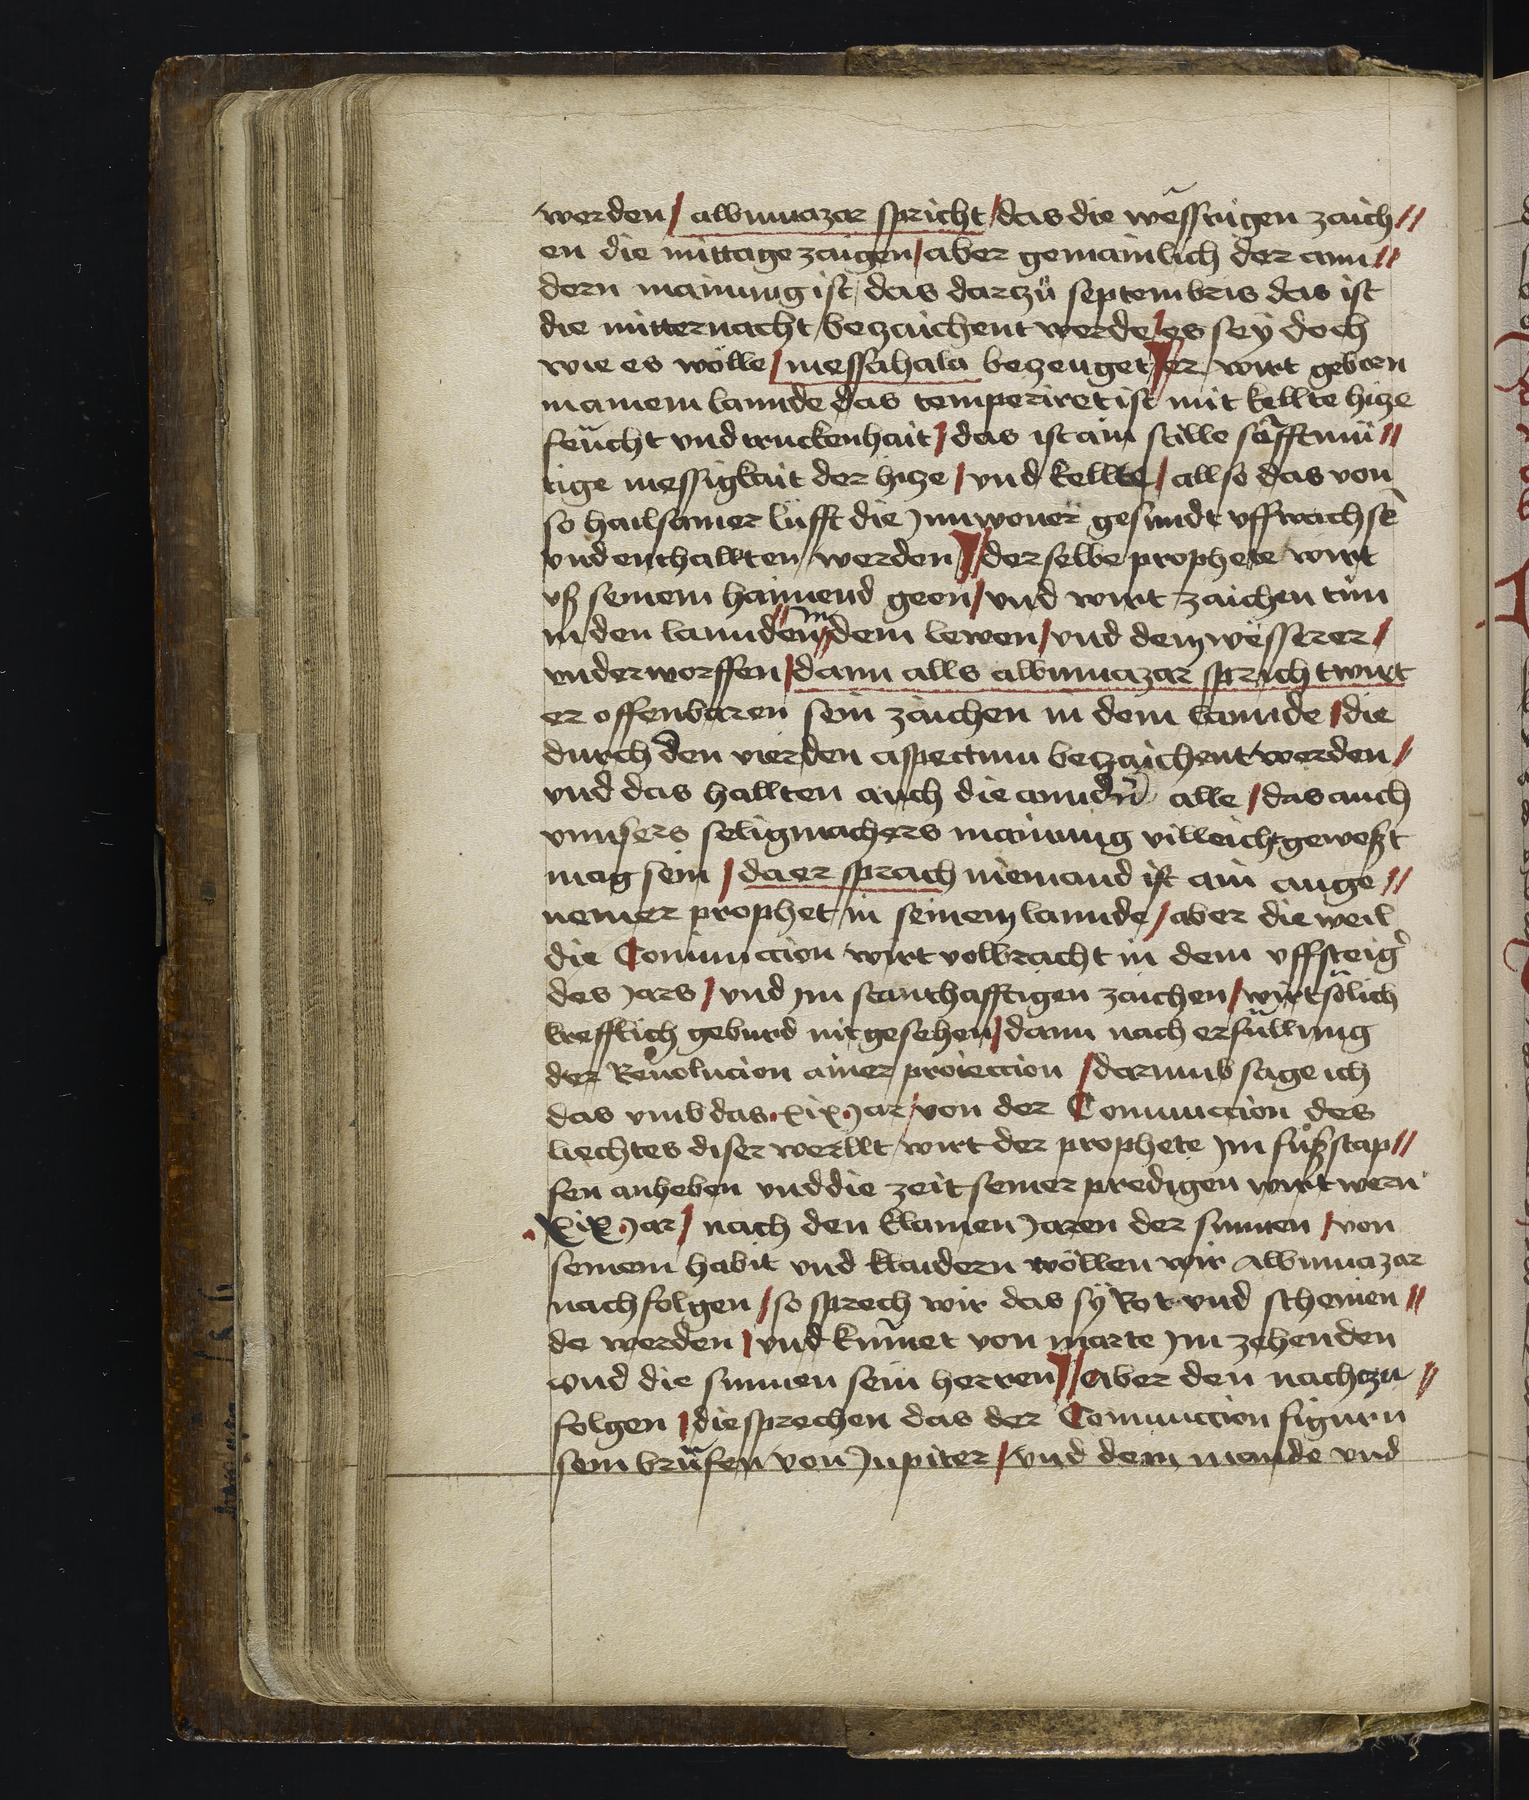 werden / albumazar spricht / das die wässrigen zaich//
en die mittage zaigen / aber gemainlich der ann//
dern mainung ist / das darzů septembris das ist
die mitternacht bezaichent werde / es sey doch
wie es wölle / messahala bezeuget / er wirt geborn
in ainem lannde das temperiret ist mit kellte hize
feücht vnd truckenhait / das ist ain stille säfftmü//
tige messigkait der hize / vnd kellte / allso das von
so hailsamer lüfft die Jnwoner gesundt vffwachsē
vnd enthallten werden // der selbe prophete wirt
vß seinem haimend geen / vnd wirt zaichen tün
in den lannden // dem lewen / vnd dem wesserer /
vnderworffen / dann alls albumazar spricht wirt
er offenbaren sein zaichen in dem lannde / die
durch den vierden aspectum bezaichent werden /
vnd das hallten auch die anndrn alle / das auch
vnnsers seligmachers mainung villeicht geweßt
mag sein / da er sprach niemand ist ain ange//
nemer prophet in seinem lannde / aber die weil
die Coniunccion wirt volbracht in dem vffsteig
des Jars / vnd Jm stanthafftigen zaichen / wirt sölich
krefftlich geburd nit gesehen / dann nach erfüllung
der Reuolucion ainer proieccion / darumb sage ich
das vmb das .xix. Jar / von der Coniunccion des
liechtes diser werllt wirt der prophete Jm fůßstap//
fen anheben vnd die zeit seiner predigen wirt wern
.xix. Jar / nach den klainen Jaren der sunnen / von
seinem habit vnd klaidern wöllen wir Albumazar
nachfolgen / so sprech wir das sÿ Rot vnd scheinen//
de werden / vnd kumet von marte Jm zehenden
vnd die sunnen sein herren // aber den nachzu//
folgen / die sprechen das der Coniunccion figurn
sein brüfen von Jupiter / vnd dem monde vnd